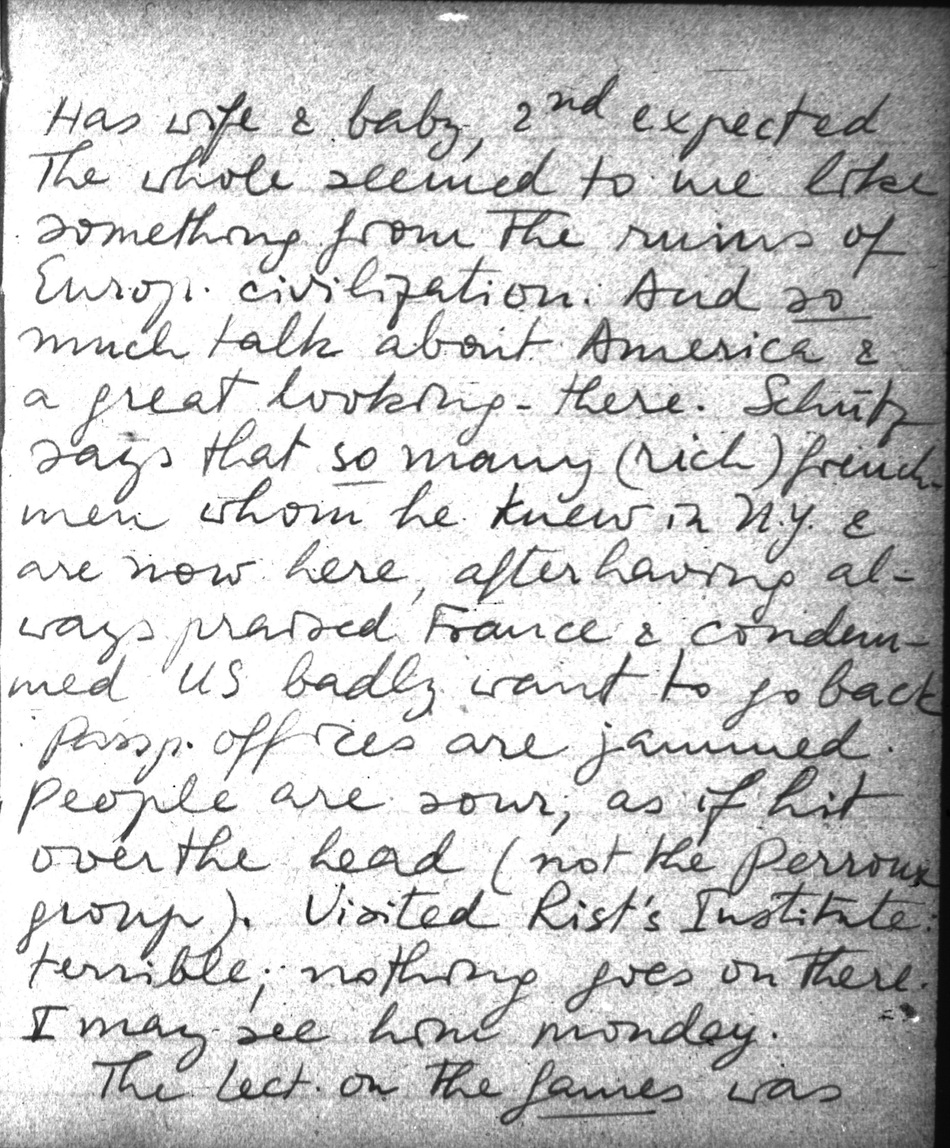 Has wife & baby, 2nd expected
The whole seemed to me like
something from the ruins of
Europ. civilization. And so
much talk about America &
a great looking-there. Schütz
says that so many (rich) french-
men whom he knew in N.Y. &
are now here, after having al-
ways praised France & condem-
med US badly want to go back
Passp. offices are jammed.
People are sour, as if hit
over the head (not the Perroux
group). Visited Rist's Institute:
terrible; nothing goes on there.
I may see him monday.
The lect. on the games was